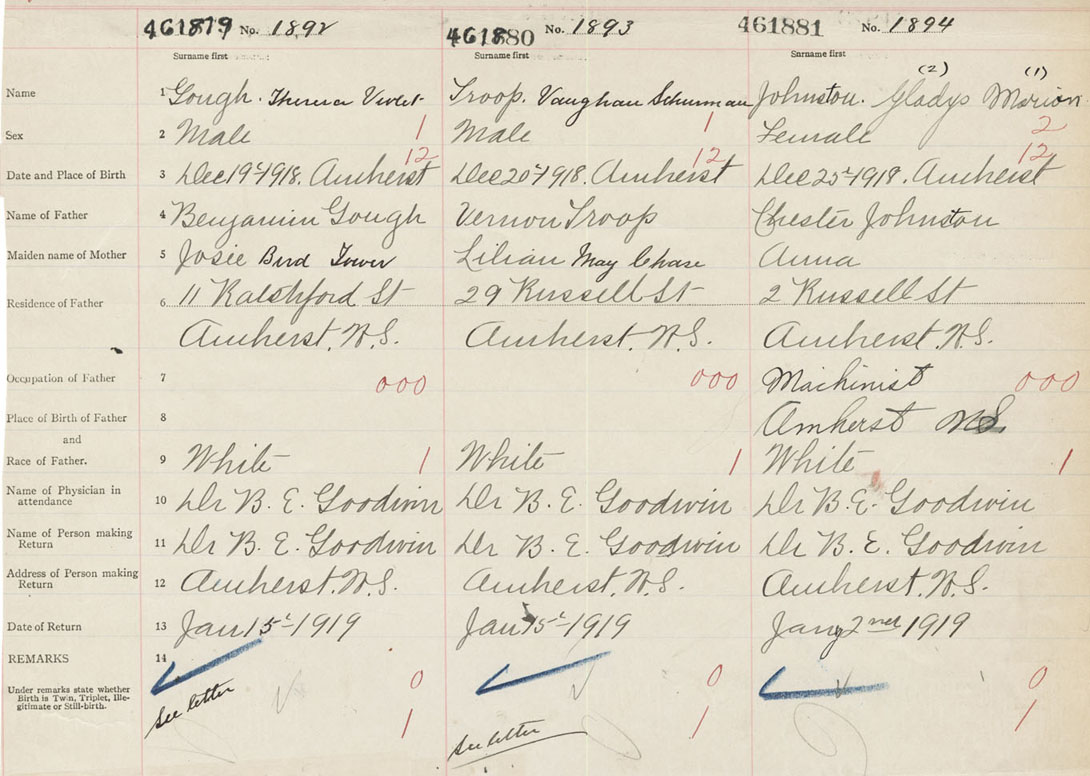 461879 No. 1892 461880 No. 1893 461881 No. 1894
Surname first Surname first Surname first
(2) (1)
Name 1 Gough. Theresa Violet Troop. Vaughan Schurman Johnston. Gladys Marion
Sex 2 Male 1 Male 1 Female 2
12 12 12
Date and Place of Birth 3 Dec 19th 1918. Amherst Dec 20th 1918. Amherst Dec 25th 1918. Amherst
Name of Father 4 Benjamin Gough Vernon Troop Chester Johnston
Maiden name of Mother 5 Josie Lilian May Chase Anna
Residence of Father 6 11 St 29 Russell St 2 Russell St
Amherst. N.S. Amherst. N.S. Amherst. N.S.
Occupation of Father 7 000 000 Machinist 000
Place of Birth of Father 8 Amherst NS
and
Race of Father. 9 White 1 White 1 White 1
Name of Physician in
attendance 10 Dr B. E. Goodwin Dr B. E. Goodwin Dr B. E. Goodwin
Name of Person making
Return 11 Dr B. E. Goodwin Dr B. E. Goodwin Dr B. E. Goodwin
Address of Person making
Return 12 Amherst. N.S. Amherst. N.S. Amherst. N.S.
Date of Return 13 Jan 15th 1919 Jan 15th 1919 Jany 2nd 1919
REMARKS 14
Under remarks state whether
Birth is Twin, Triplet, Ille-
gitimate or Still-birth.
0 0 0
See letter 1 See letter 1 1